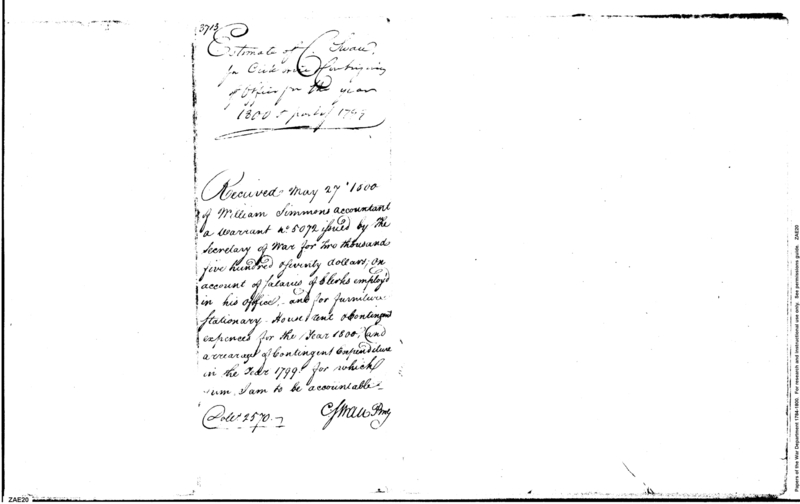 3713
Estimate of C. Swan,
for
of Office for the year
1800 & part of 1799
Received May 27th 1800
of William Simmons accountant
a Warrant no. 5072 issued by the
Secretary of War for two thousand
five hundred & seventy dollars, on
account of Salaries of Clerks employd
in his office - and for furniture
Stationary - House rent & Contingent
expences for the Year 1800, and
arrearages of Contingent Expenditure
in the Year 1799. for which
sum, I am to be accountable -
Dolls. 2570.
CSwan Pmg
ZAE20
Papers of the War Department 1784-1800. For research and instructional use only. See permissions guide. ZAE20